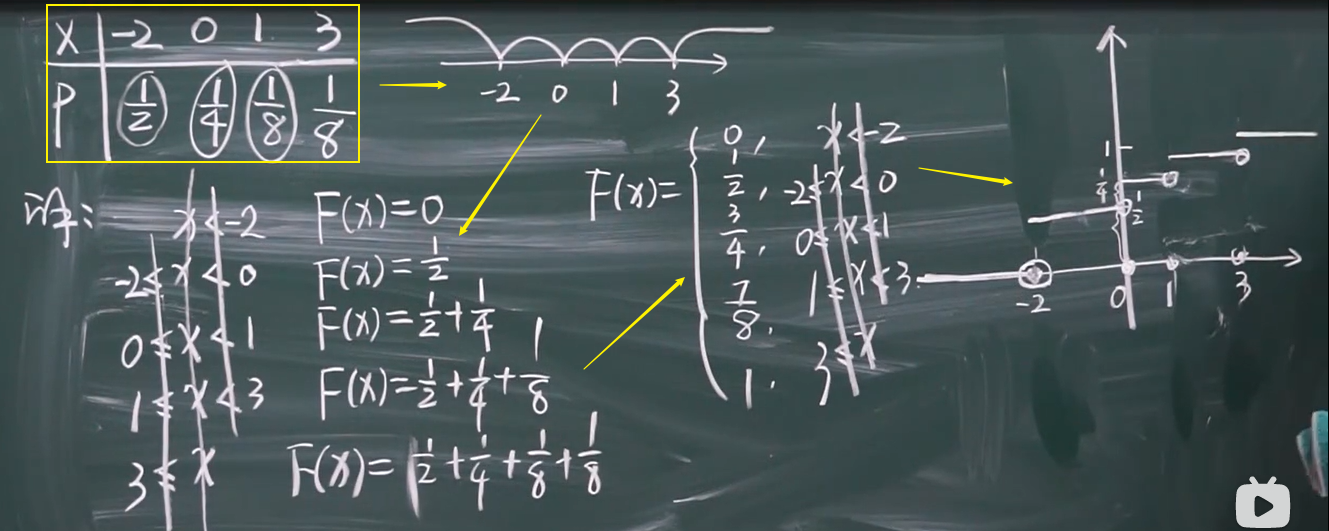 X -2 0 1 3
P 1/2 1/4 1/8 1/8
-2 0 1 3
解:
x < -2 F(x) = 0
-2 ≤ x < 0 F(x) = 1/2
0 ≤ x < 1 F(x) = 1/2 + 1/4
1 ≤ x < 3 F(x) = 1/2 + 1/4 + 1/8
3 ≤ x F(x) = 1/2 + 1/4 + 1/8 + 1/8
F(x) =
0, x < -2
1/2, -2 ≤ x < 0
3/4, 0 ≤ x < 1
7/8, 1 ≤ x < 3
1, 3 ≤ x
1
1/4
1/2
-2 0 1 3